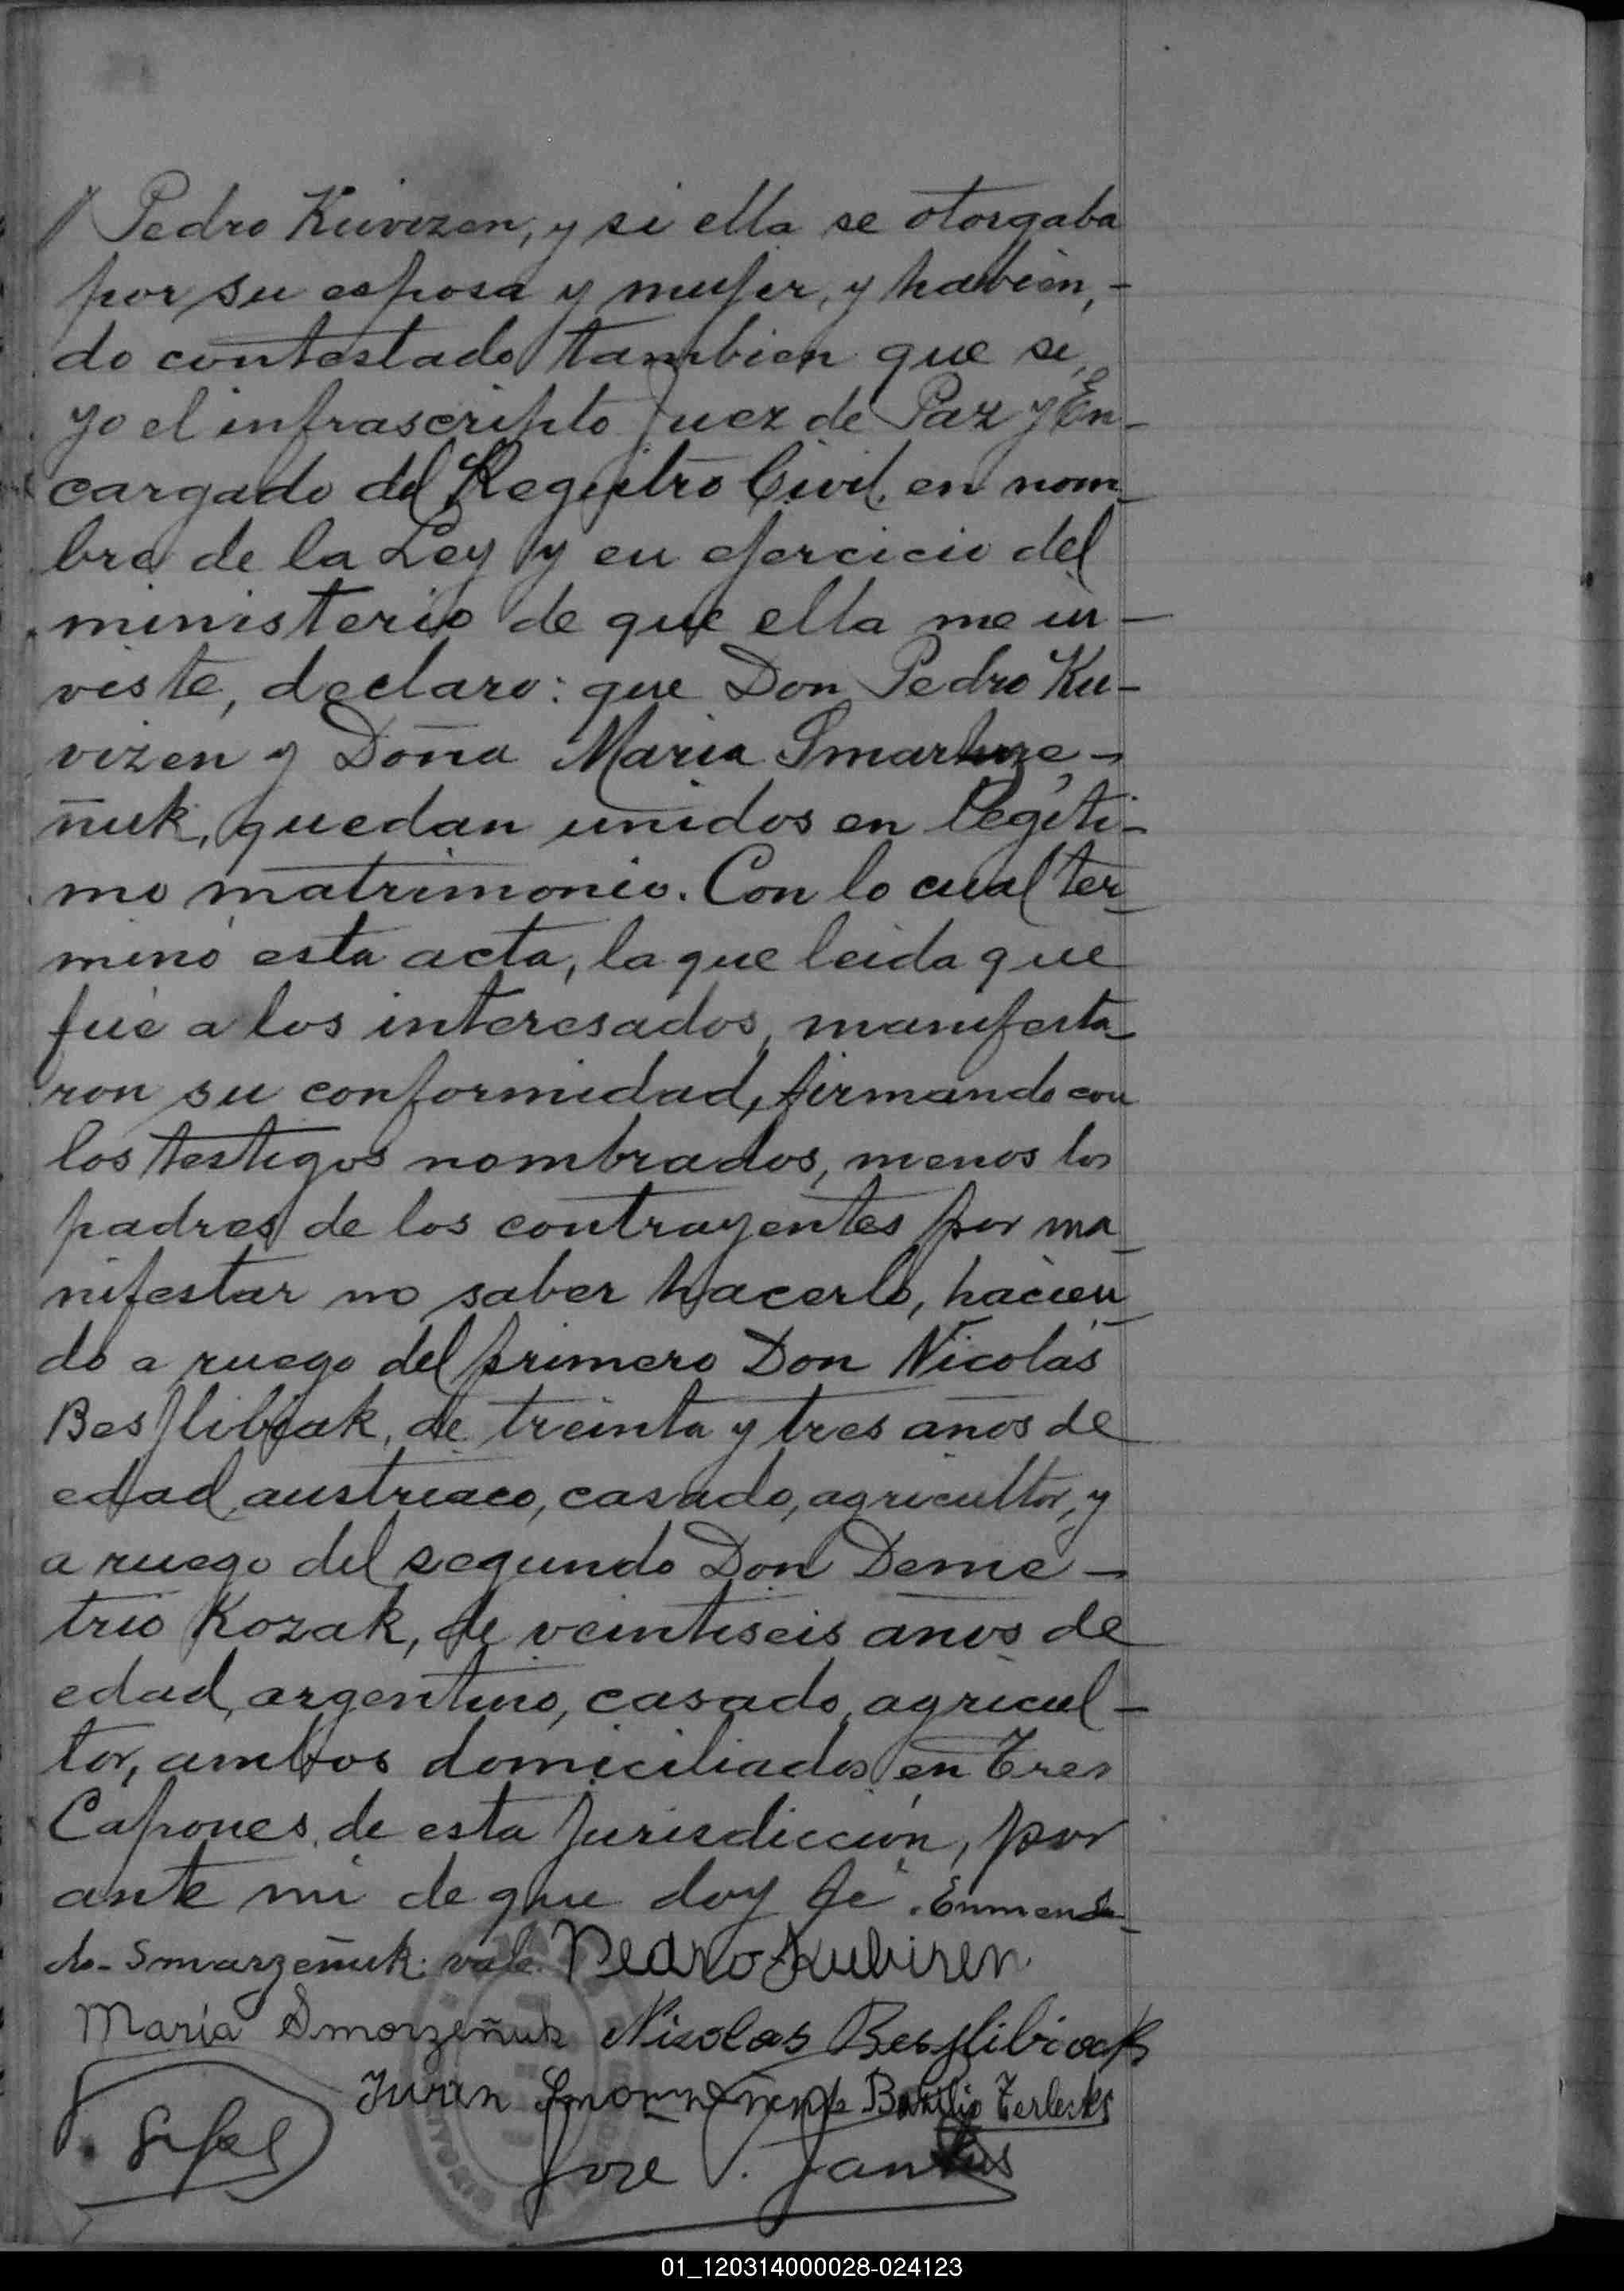 // Pedro Kuvizen, y si ella se otorgaba
por su esposa y mujer, y habien,-
do contestado tambien que si,
yo el infrascripto Juez de Paz y En-
cargado del Registro Civil, en nom-
bre de la Ley y en ejercicio del
ministerio de que ella me in-
viste, declaro: que Don Pedro Ku-
vizen y Doña Maria Smarze-
ñuk, quedan unidos en legíti-
mo matrimonio. Con lo cual ter-
minó esta acta, la que leida que
fué a los interesados, manifesta-
ron su conformidad, firmando con
los testigos nombrados, menos los
padres de los contrayentes por ma-
nifestar no saber hacerlo, hacien-
do a ruego del primero Don Nicolás
Besjlibiak, de treinta y tres años de
edad, austriaco, casado, agricultor, y
a ruego del segundo Don Deme-
trio Kozak, de veintiseis años de
edad, argentino, casado, agricul-
tor, ambos domiciliados en Tres
Capones, de esta jurisdicción, por
ante mi de que doy fé. Enmenda-
do - Smarzeñuk: vale. Pedro Kubisen
María Smorzeñuk Nicolas Besjlibiak
Iwan Basilio Terlecki
José V.
01_120314000028-024123